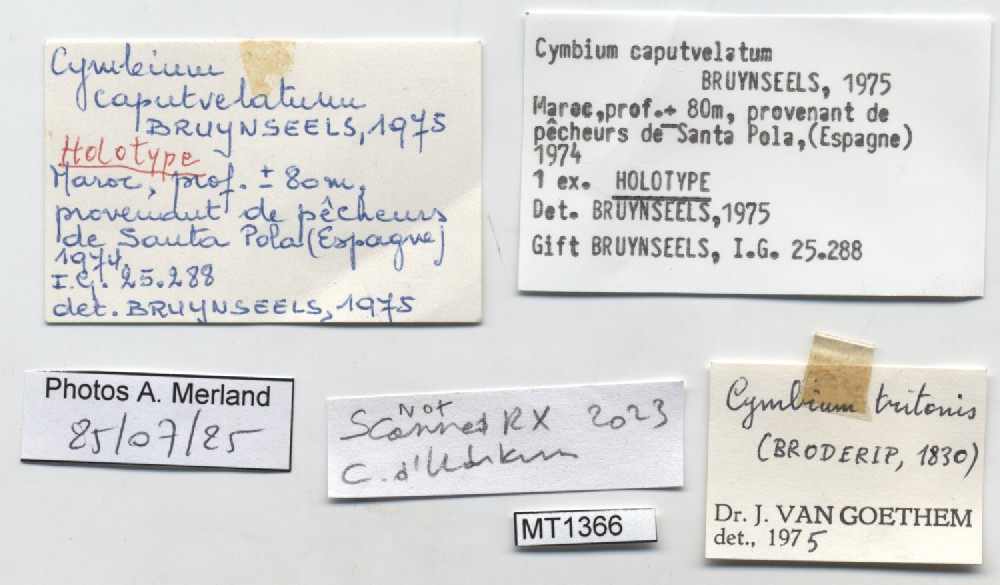 Cymbium
caputvelatum
BRUYNSEELS, 1975
Holotype
Maroc, prof. ± 80m,
provenant de pêcheurs
de Santa Pola (Espagne)
1974.
I.G. 25.288
det. BRUYNSEELS, 1975
Cymbium caputvelatum
BRUYNSEELS, 1975
Maroc,prof.± 80m, provenant de
pêcheurs de Santa Pola,(Espagne)
1974
1 ex. HOLOTYPE
Det. BRUYNSEELS,1975
Gift BRUYNSEELS, I.G. 25.288
Photos A. Merland
25/07/25
Not
Scanned RX 2023
C. d'
MT1366
Cymbium tritonis
(BRODERIP, 1830)
Dr. J. VAN GOETHEM
det., 1975